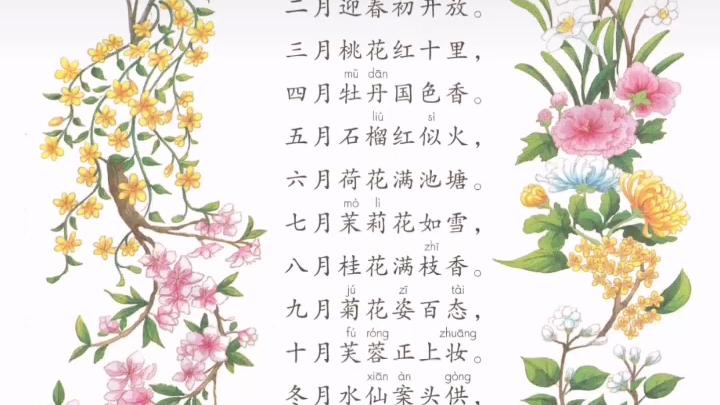 二月迎春初开放。
三月桃花红十里，
mǔ dān
四月牡丹国色香。
liú sì
五月石榴红似火，
六月荷花满池塘。
mò lì
七月茉莉花如雪，
zhī
八月桂花满枝香。
jú zī tài
九月菊花姿百态，
fú róng zhuāng
十月芙蓉正上妆。
xiān àn gòng
冬月水仙案头供，